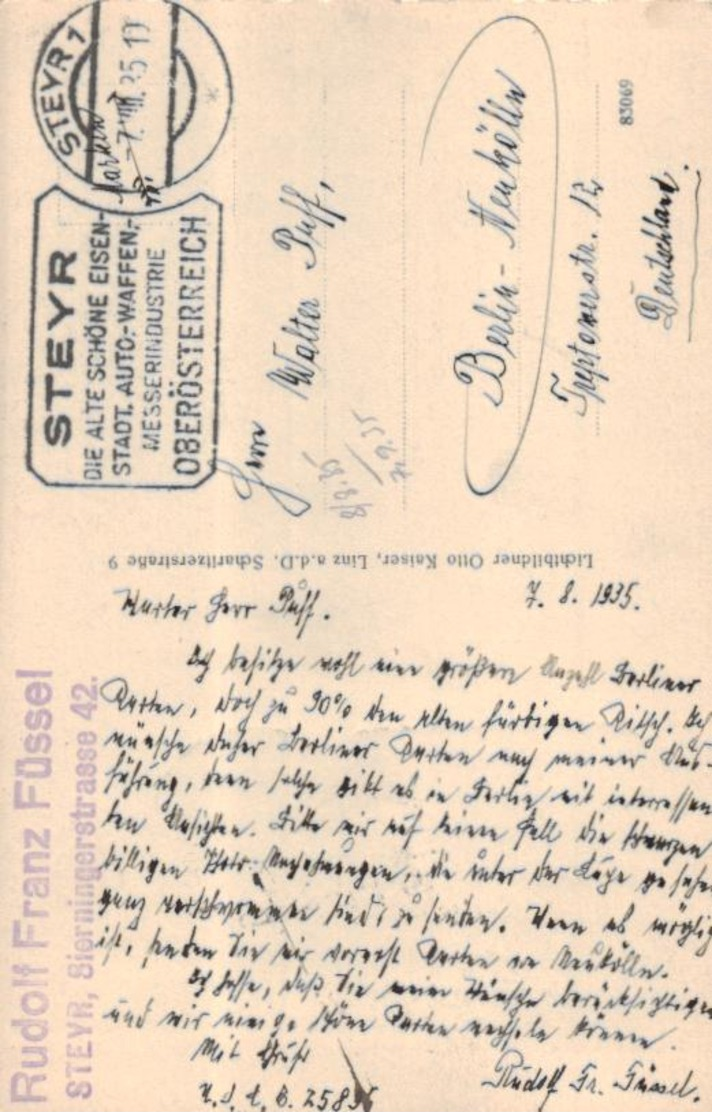 STEYR 1
-7.VIII.35 17
Marken
STEYR
DIE ALTE SCHÖNE EISEN-
STADT. AUTO-WAFFEN,-
MESSERINDUSTRIE
OBERÖSTERREICH
Herrn Walter Puff,
8/8.35
7.9.35
Berlin - Neukölln
Treptowerstr. 12
Deutschland.
83069
Lichtbildner Otto Kaiser, Linz a.d.D. Scharitzerstraße 9
Rudolf Franz Füssel
STEYR, Sierningerstrasse 42.
7. 8. 1935.
Werter Herr Puff.
Ich besitze wohl eine größere Anzahl Berliner
Karten, doch zu 90% den alten färbigen Kitsch. Ich
wünsche daher Berliner Karten nach meiner Aus-
führung, denn solche gibt es in Berlin mit interessan
ten Ansichten. Bitte mir auf keinen Fall die schwarzen
billigen Nachahmungen, die unter der Lupe gesehen
ganz verschwommen sind, zu senden. Wenn es möglich
ist, senden Sie mir vorerst Karten von Neukölln.
Ich hoffe, daß Sie meine Wünsche berücksichtigen
und mir einige schöne Karten wechseln können.
Mit Gruß
Rudolf Fr. Füssel.